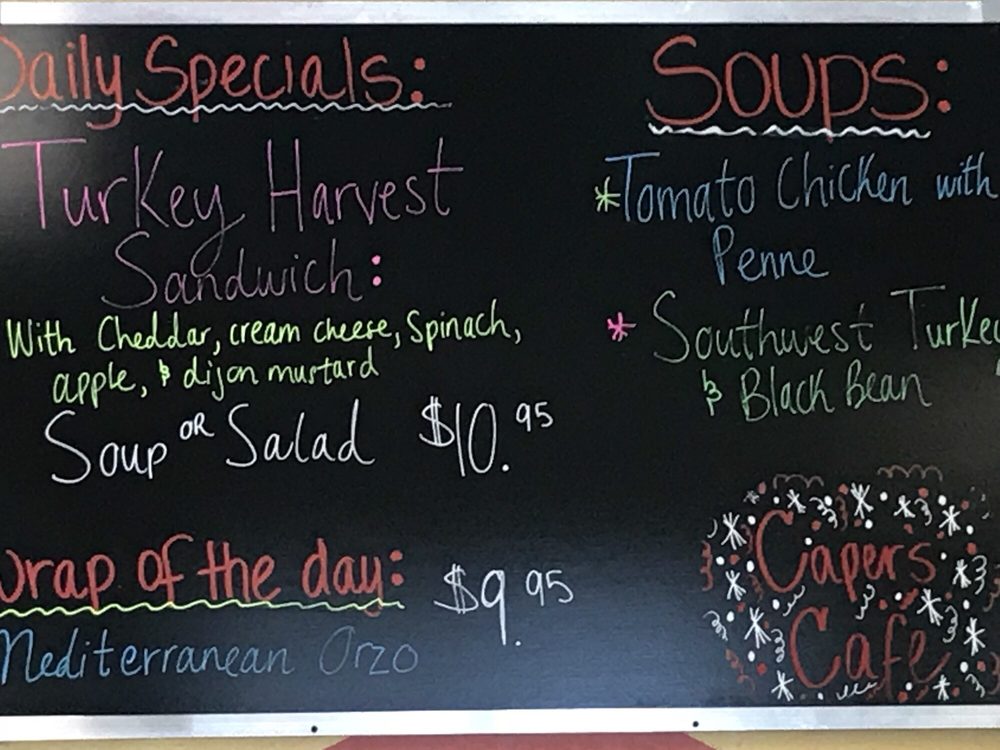 Daily Specials:
Turkey Harvest
Sandwich:
With Cheddar, cream cheese, Spinach,
apple, & dijon mustard
Soup OR Salad $10.95
Wrap of the day: $9.95
Mediterranean Orzo
Soups:
*Tomato Chicken with
Penne
* Southwest Turkey
& Black Bean
Capers
Café